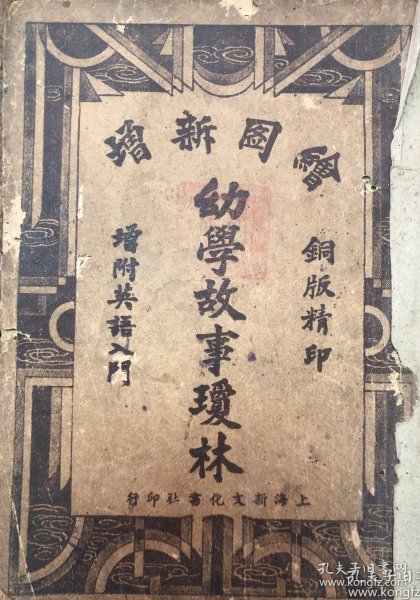 繪圖新增
銅版精印
幼學故事瓊林
增附英語入門
上海新文化書社印行
孔夫子旧书网
www.kongfz.com